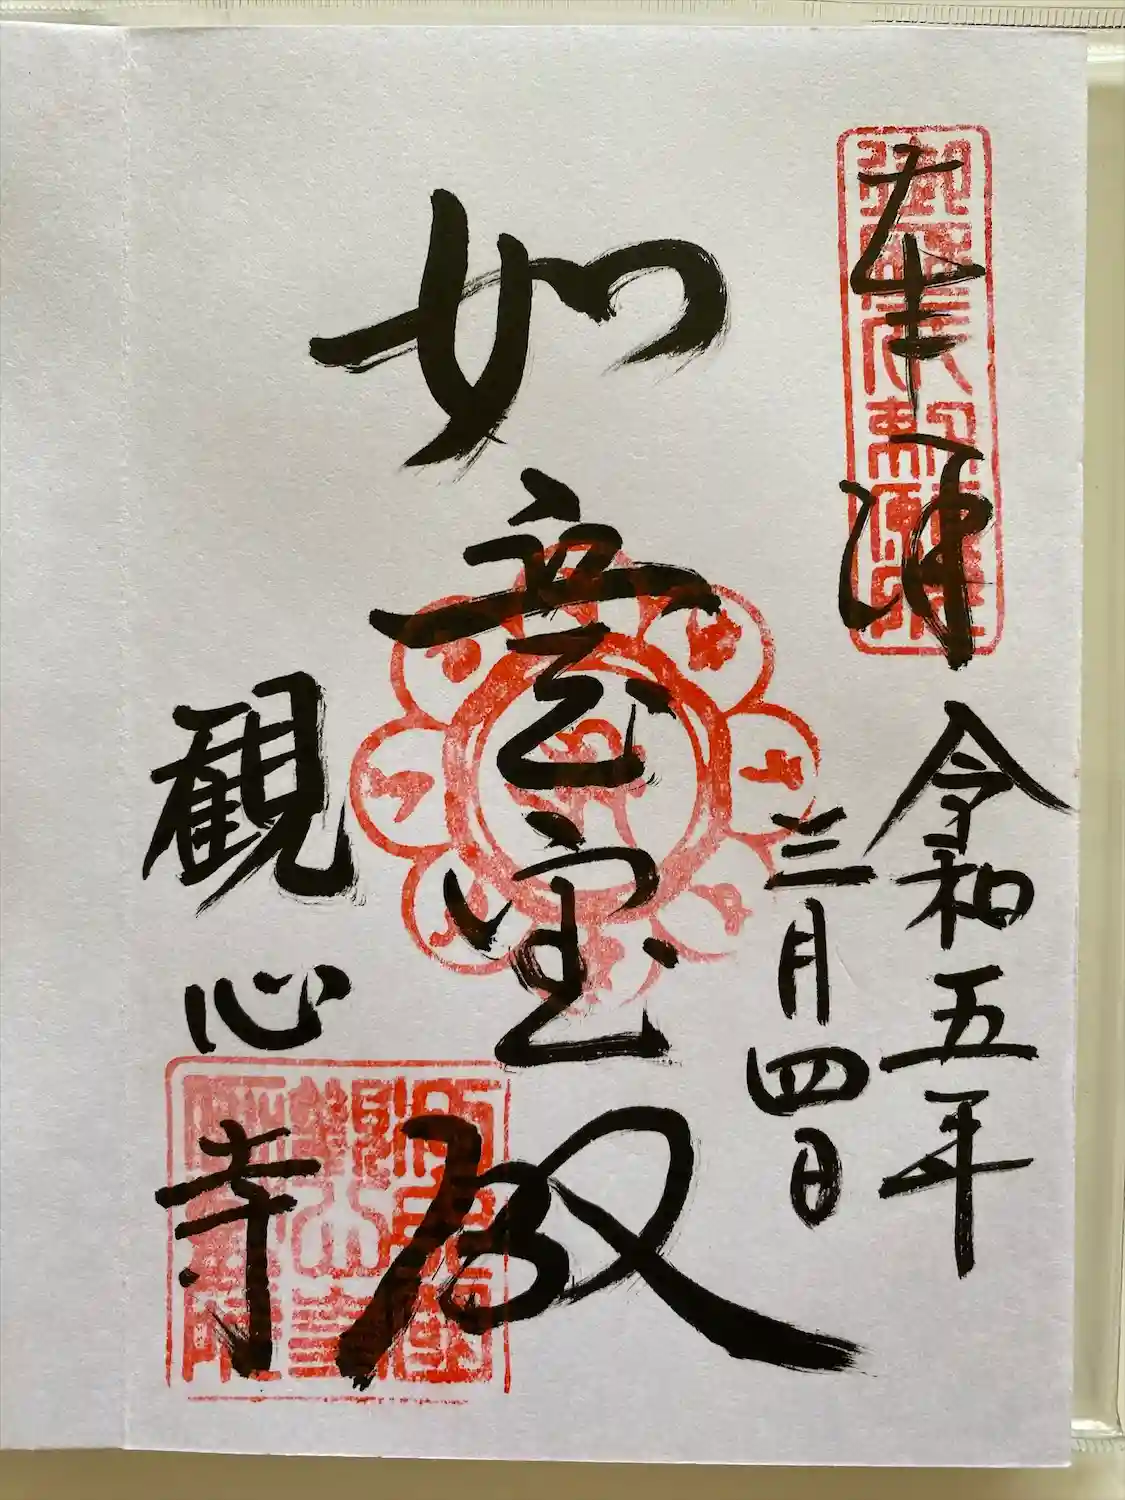 奉拝
令和五年
三月四日
如意宝殿
観心寺